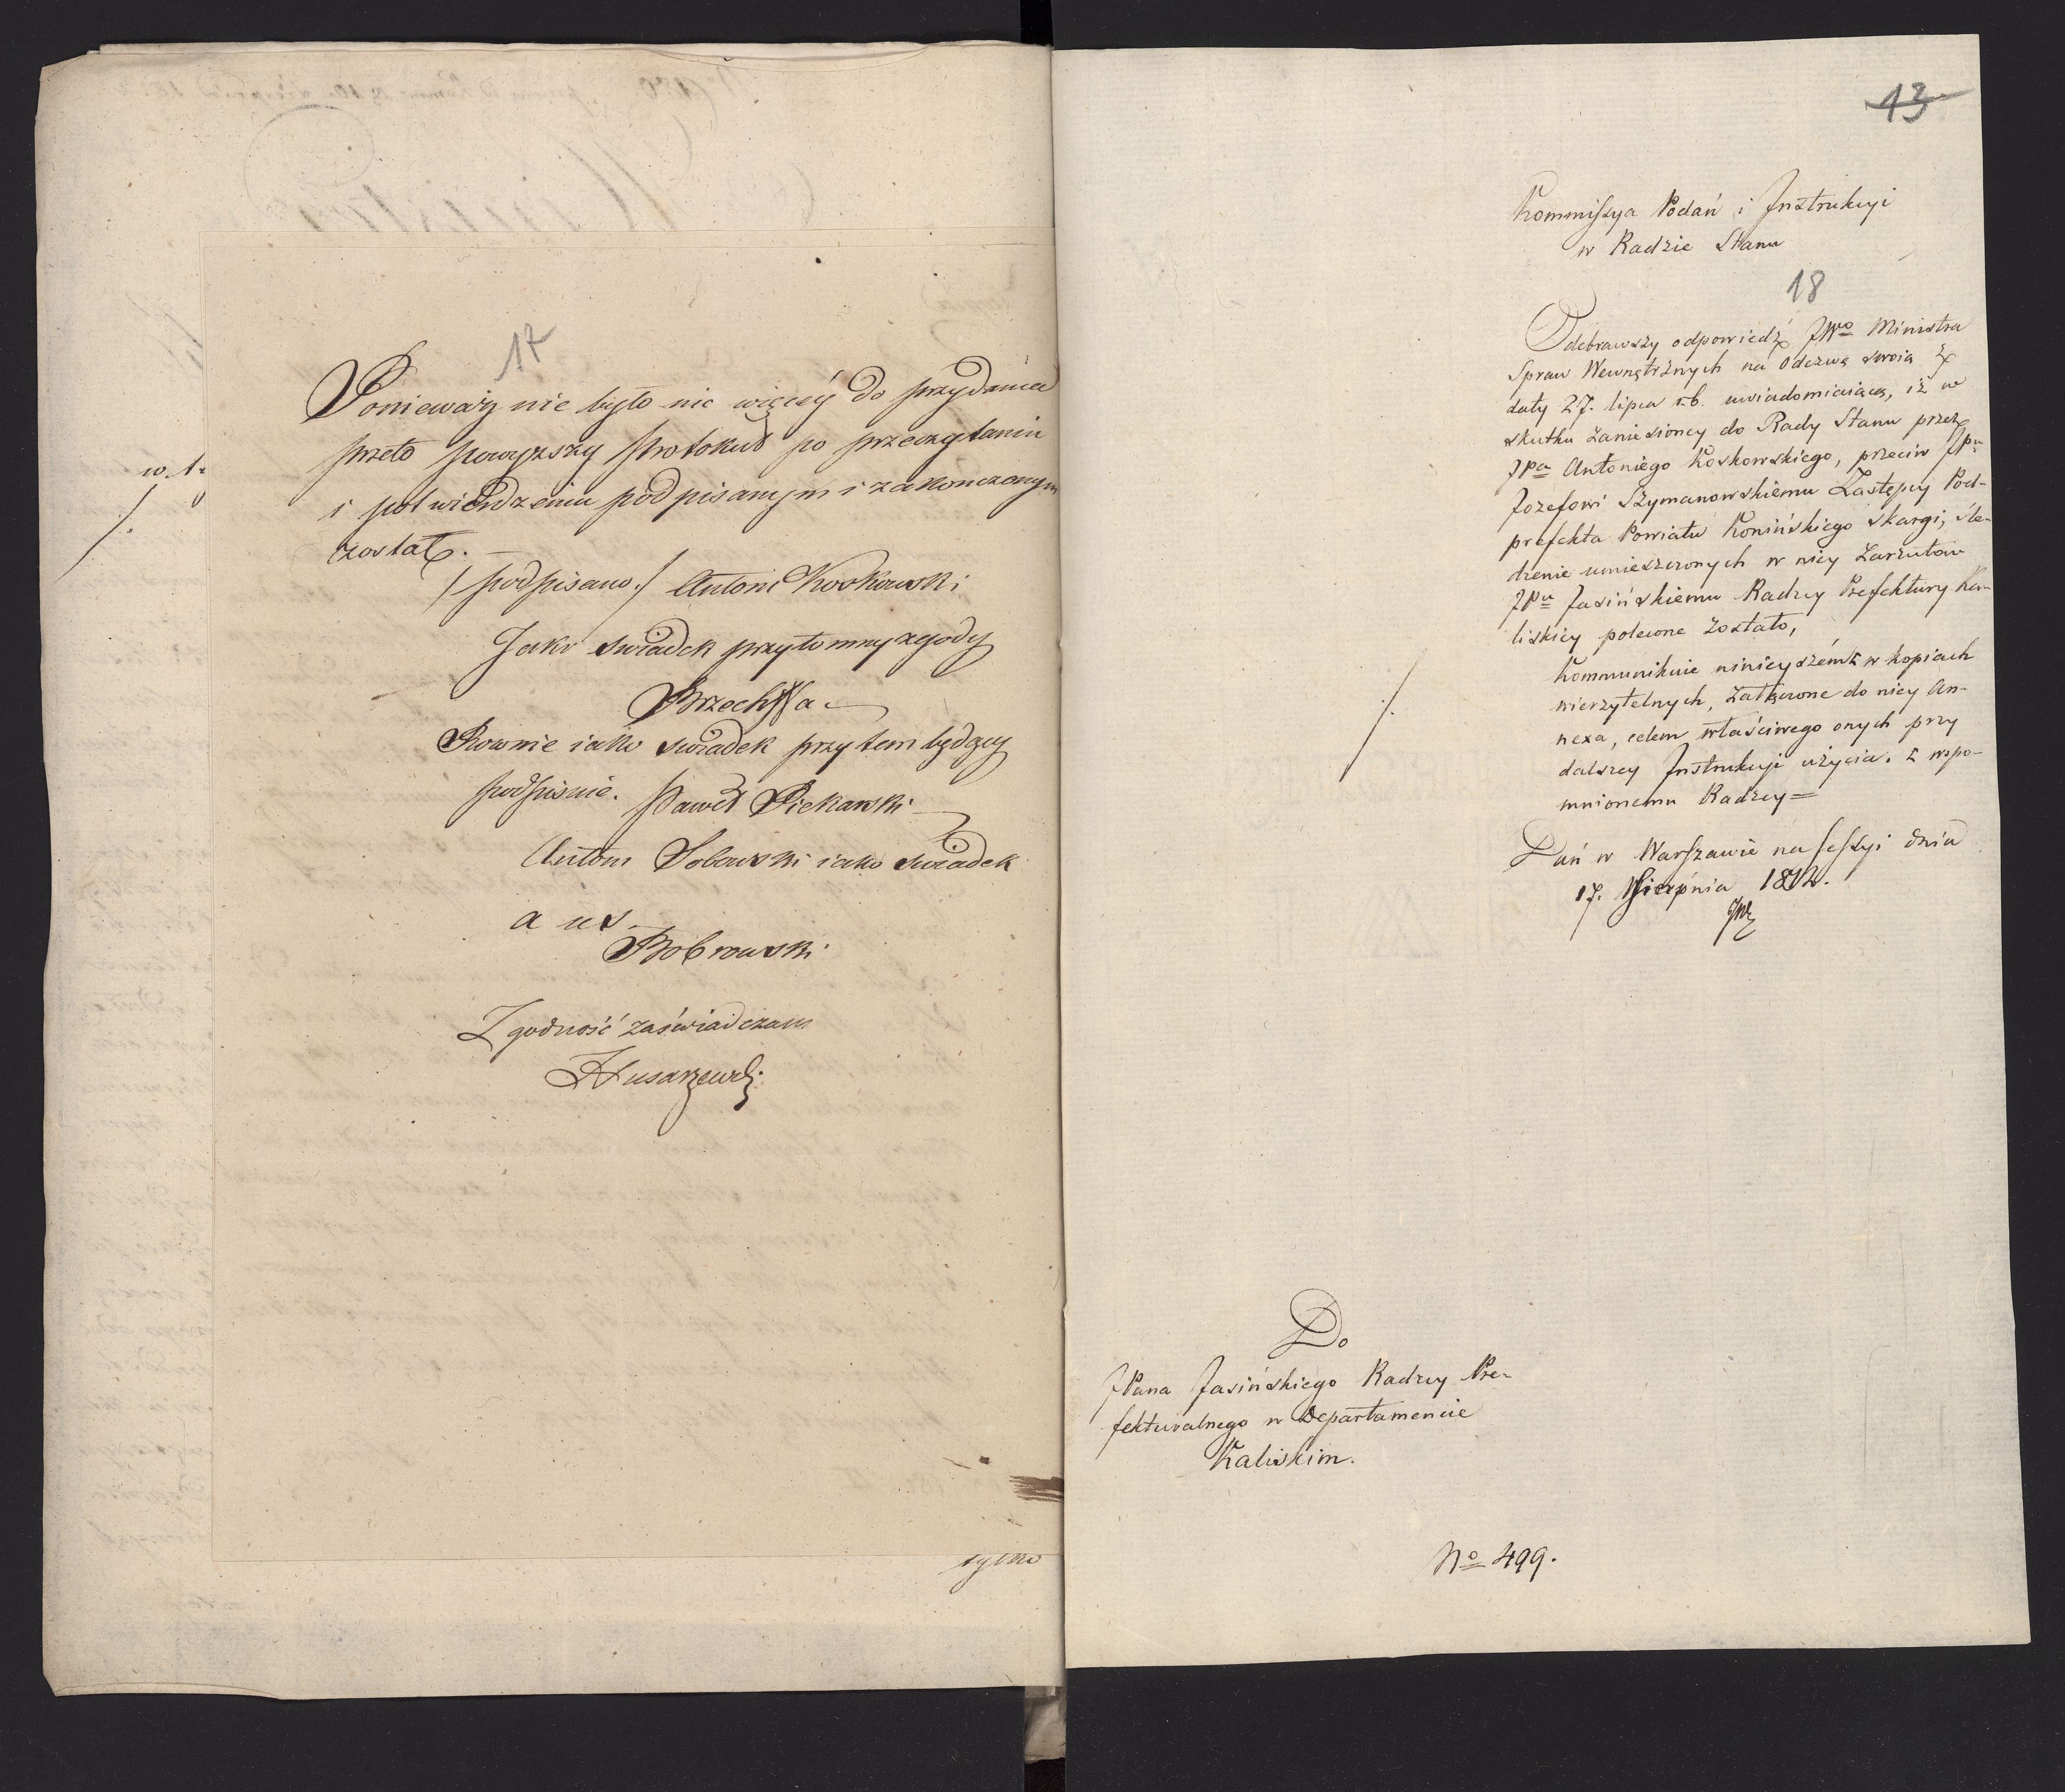 17
Ponieważ nie było nic więcéy do przydania
przeto powyższy Protokuł po przeczytaniu
i potwierdzeniu podpisanym i zakonczonym
został. —
/podpisano./ Antoni Koskowski
Jako swiadek przytomny zgody
Brzechffa
Rownie iako swiadek przy tem będący
podpisuie. Paweł Piekarski
Antoni Sobowski iako swiadek
a u s
Bobrowski
Zgodność zaświadczam
Husarzewski
tylko
13
Kommissya Podań i Instrukcyi
w Radzie Stanu
18
Odebrawszy odpowiedź JWo Ministra
Spraw Wewnętrznych na Odezwę swoią z
daty 27. lipca r.b. uwiadomiaiącą, iż w
skutku zaniesioney do Rady Stanu przez
JPa Antoniego Koskowskiego, przeciw JPu
Jozefowi Szymanowskiemu Zastępcy Pod-
prefekta Powiatu Konińskiego skargi, śle-
dzenie umieszczonych w niey Zarzutow
JPu Jasińskiemu Radzcy Prefektury Ka-
liskiey polecone zostało,
Kommunikuie ninieyszém w kopiach
wierzytelnych, Załączone do niey An-
nexa, celem właściwego onych przy
dalszey Instrukcyi użycia. wspo-
mnionemu Radzcy =
Dań w Warszawie na Sessyi dnia
17. Sierpnia 1812.
Do
JPana Jasińskiego Radzcy Pre-
fekturalnego w Departamencie
Kaliskim.
No 499.